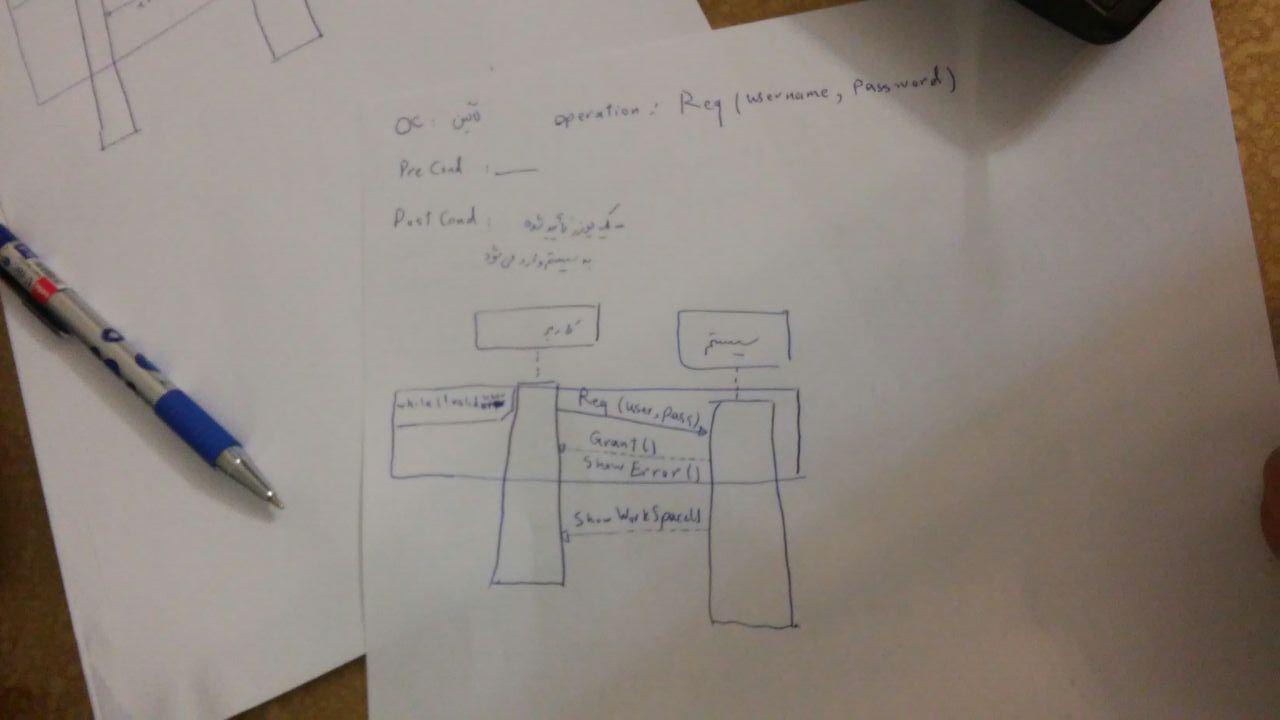 OC: operation: Req (username, Password)
Pre Cond : —
Post Cond : - یک یوزر تأیید شده
به سیستم وارد می‌شود
کاربر سیستم
while (!valid
Req (user, pass)
Grant()
Show Error()
Show WorkSpace()